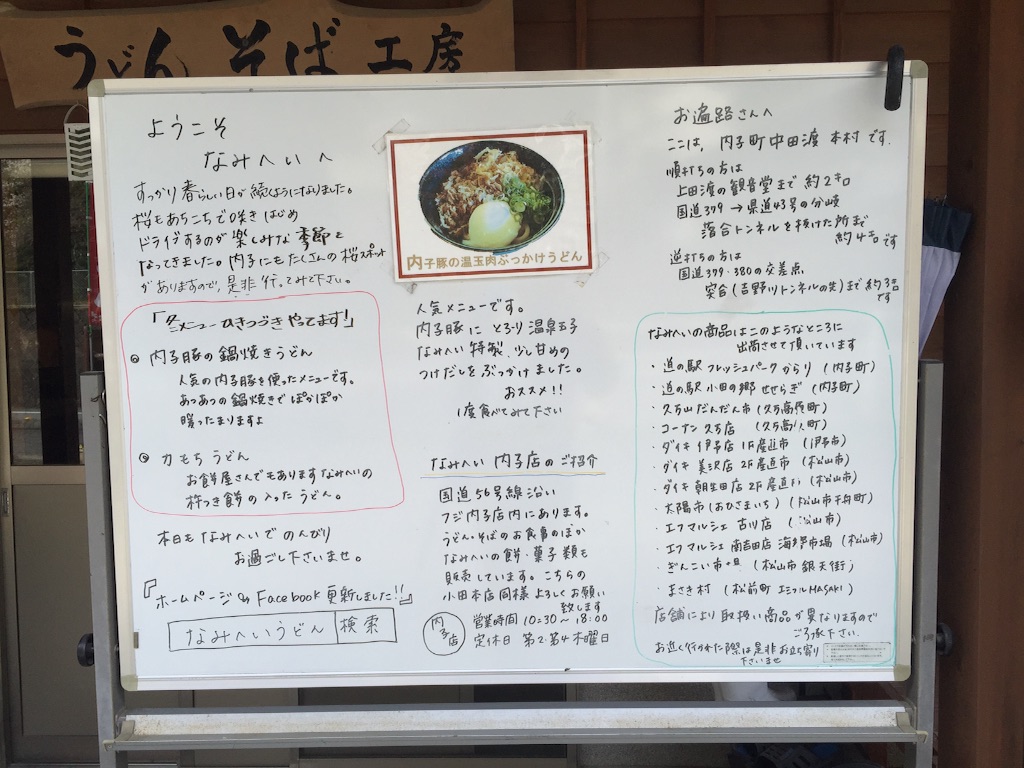 うどん そば 工房
ようこそ
なみへいへ
すっかり春らしい日が続くようになりました。
桜もあちこちで咲きはじめ
ドライブするのが楽しみな季節と
なってきました。内子にもたくさんの桜スポット
がありますので、是非行ってみて下さい。
「冬メニューひきつづきやってます!」
内子豚の鍋焼きうどん
人気の内子豚を使ったメニューです。
あつあつの鍋焼きでぽかぽか
暖ったまりますよ
力もちうどん
お餅屋さんでもありますなみへいの
杵つき餅の入ったうどん。
本日もなみへいでのんびり
お過ごし下さいませ。
『ホームページ Facebook更新しました!!』
なみへいうどん 検索
内子豚の温玉肉ぶっかけうどん
人気メニューです。
内子豚にとろり温泉玉子
なみへい特製、少し甘めの
つけだしをぶっかけました。
おススメ!!
1度食べてみて下さい
なみへい 内子店のご紹介
国道56号線沿い
フジ内子店内にあります。
うどん・そばのお食事のほか
なみへいの餅・菓子類も
販売しています。こちらの
小田本店同様よろしくお願い
致します
内子店
営業時間 10:30〜18:00
定休日 第2.第4木曜日
お遍路さんへ
ここは、内子町中田渡 本村です.
順打ちの方は
上田渡の観音堂まで 約2キロ
国道379→県道43号の分岐
落合トンネルを抜けた所まで
約4キロです
逆打ちの方は
国道379・380の交差点
突合(吉野川トンネルの先)まで約3キロ
です
なみへいの商品はこのようなところに
出荷させて頂いています
・道の駅 フレッシュパークからり (内子町)
・道の駅 小田の郷せせらぎ (内子町)
・久万山だんだん市(久万高原町)
・コーナン久万店 (久万高原町)
・ダイキ伊予店 1F産直市 (伊予市)
・ダイキ美沢店 2F産直市 (松山市)
・ダイキ朝生田店 2F産直市 (松山市)
・太陽市(おひさまいち) (松山市千舟町)
・エフマルシェ古川店 (松山市)
・エフマルシェ南吉田店 海鮮市場 (松山市)
・ぎんこい市場 (松山市銀天街)
・まさき村 (松前町エミフルMASAKI)
店舗により取扱い商品が異なりますので
ご了承下さい.
お近く行かれた際は是非お立ち寄り
下さいませ